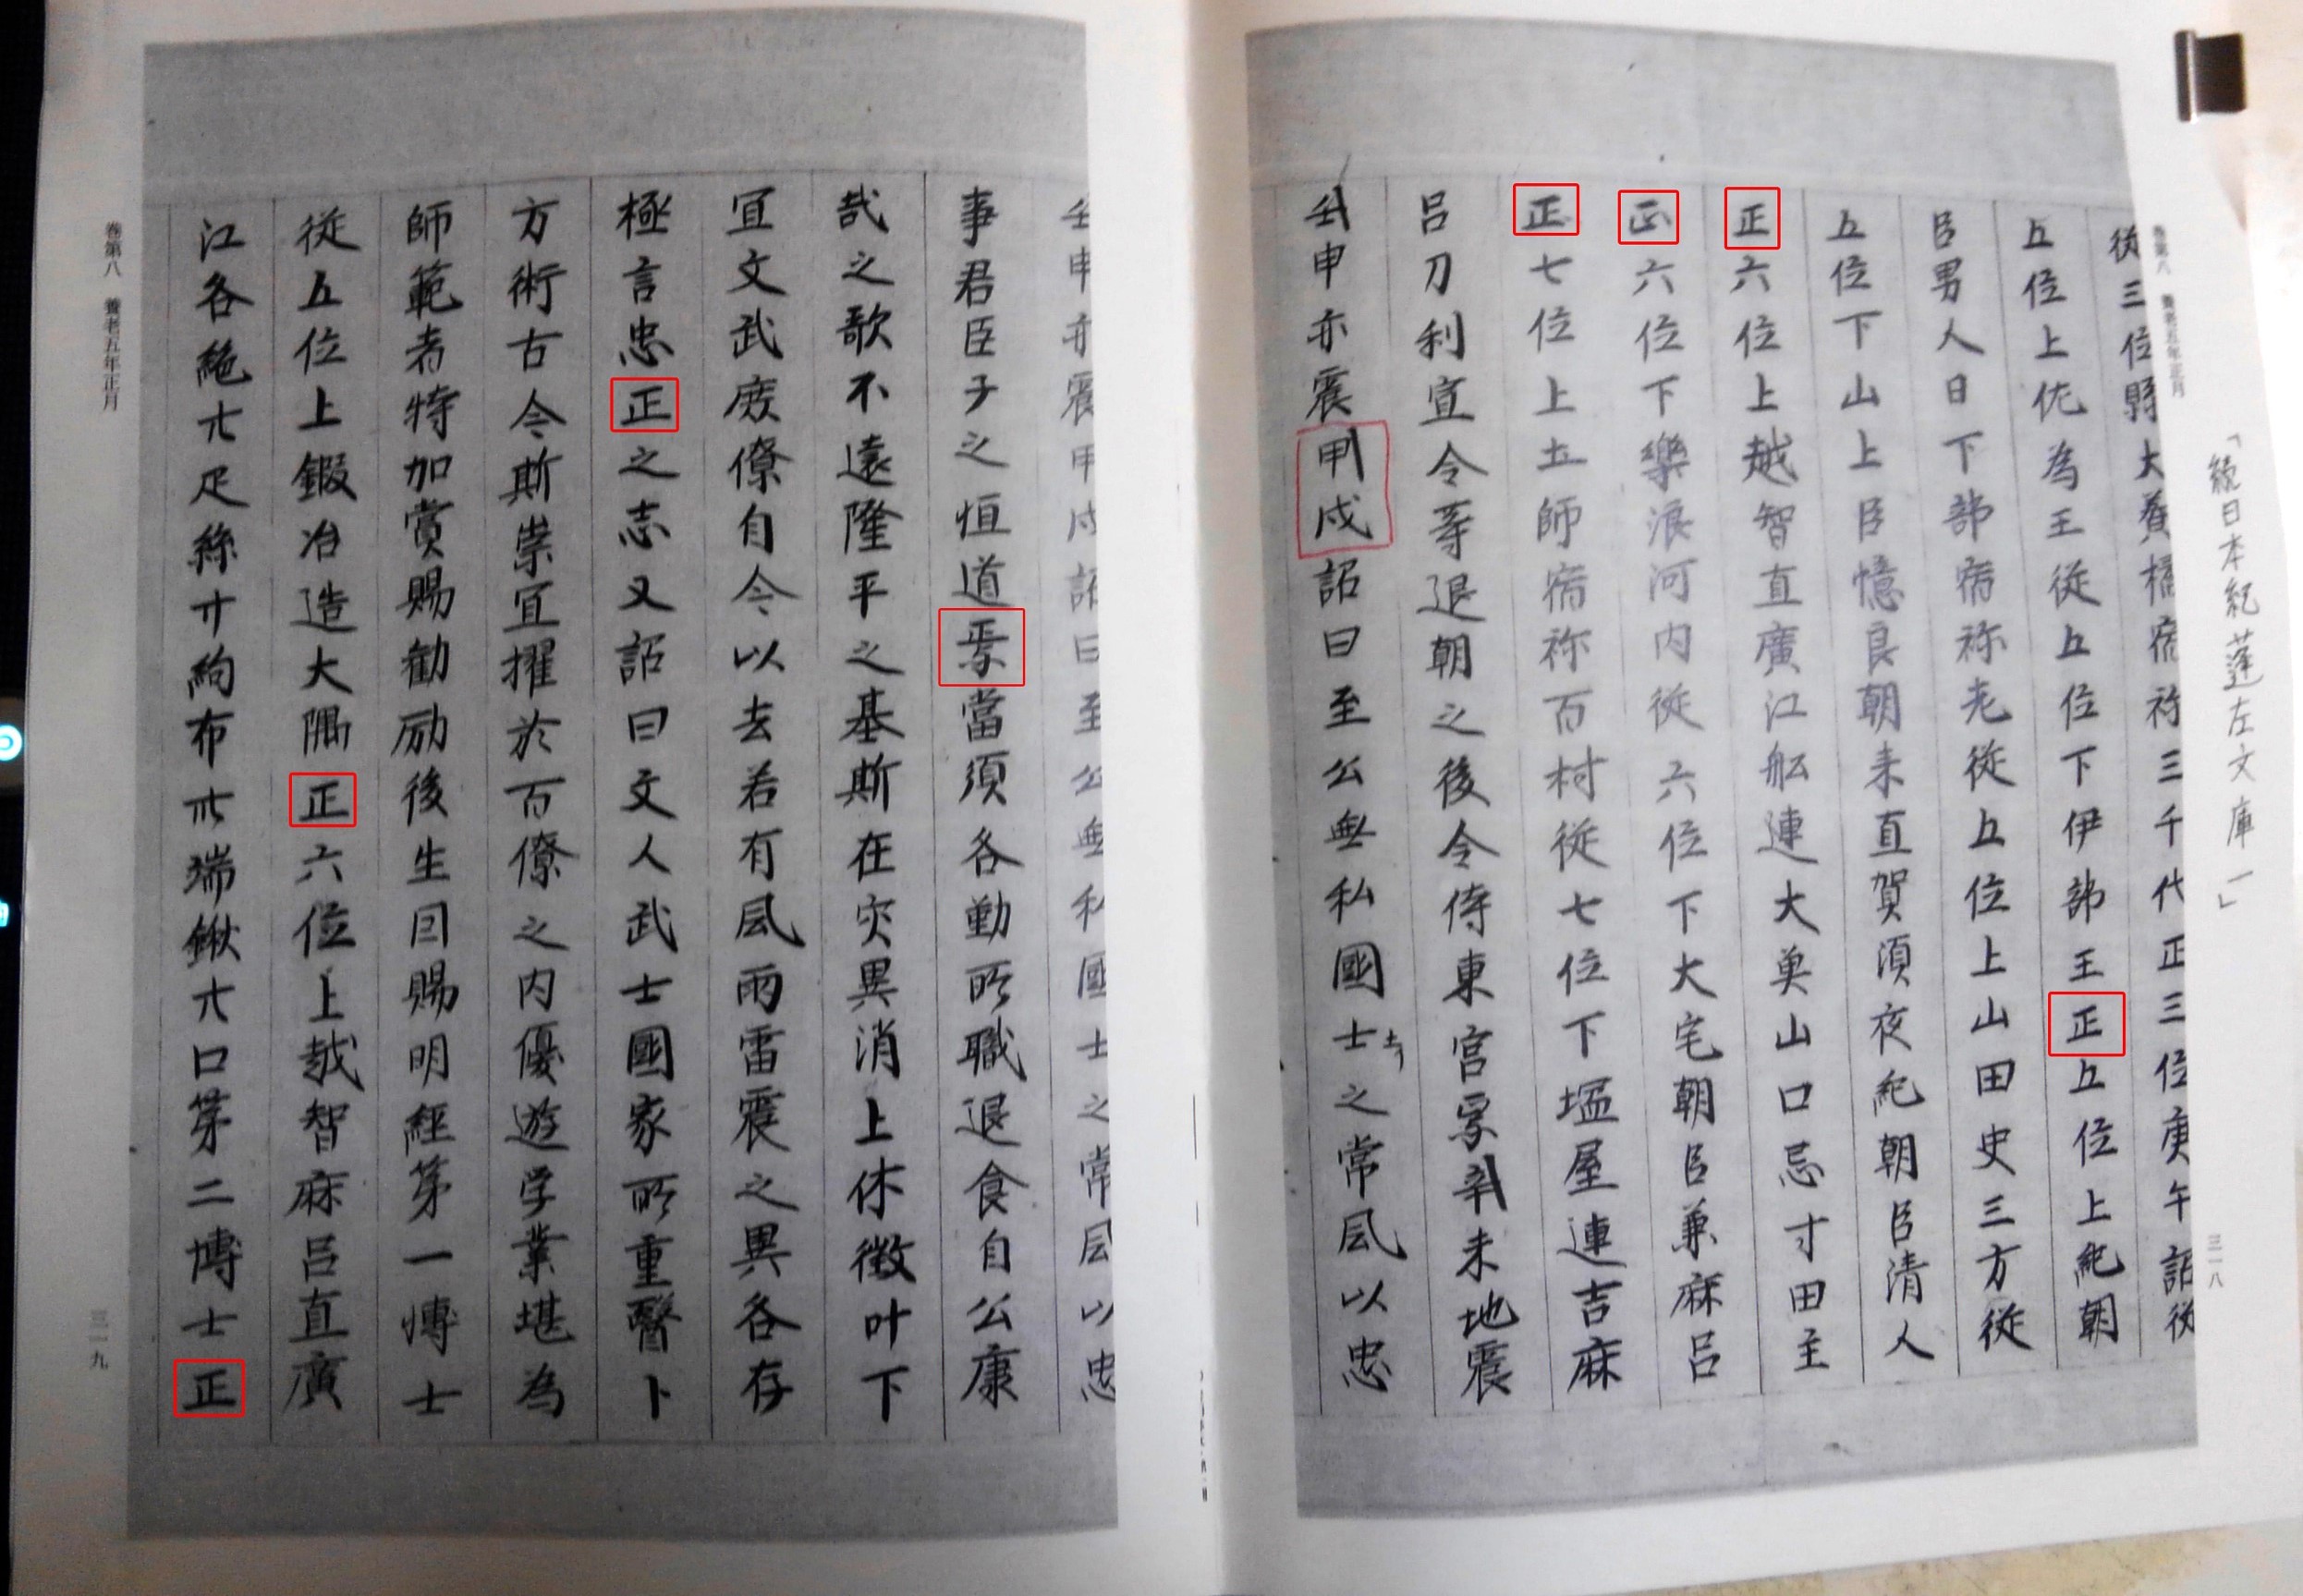 「續日本紀蓬左文庫一」
巻第八 養老五年正月
三一八
従三位縣大養橘宿祢三千代正三位庚午詔従
五位上佐為王従五位下伊部王正五位上紀朝
臣男人日下部宿祢老従五位上山田史三方従
五位下山上臣憶良朝来直賀須夜紀朝臣清人
正六位上越智直廣江船連大奠山口忌寸田主
正六位下樂浪河内従六位下大宅朝臣兼麻呂
正七位上土師宿祢百村従七位下塩屋連吉麻
呂刀利宣令等退朝之後令侍東宮焉辛未地震
壬申亦震甲戌詔曰至公無私國士之常風以忠
壬申亦震甲戌詔曰至公無私國士之常風以忠
事君臣子之恒道焉當須各勤所職退食自公康
哉之歌不遠隆平之基斯在灾異消上休徴叶下
冝文武庶僚自今以去若有風雨雷震之異各存
極言忠正之志又詔曰文人武士國家所重醫卜
方術古今斯崇冝擢於百僚之内優遊学業堪為
師範者特加賞賜勧励後生因賜明經第一博士
従五位上鍛冶造大隅正六位上越智麻呂直廣
江各絁廿疋絲廿絇布卅端鍬廿口第二博士正
巻第八 養老五年正月
三一九